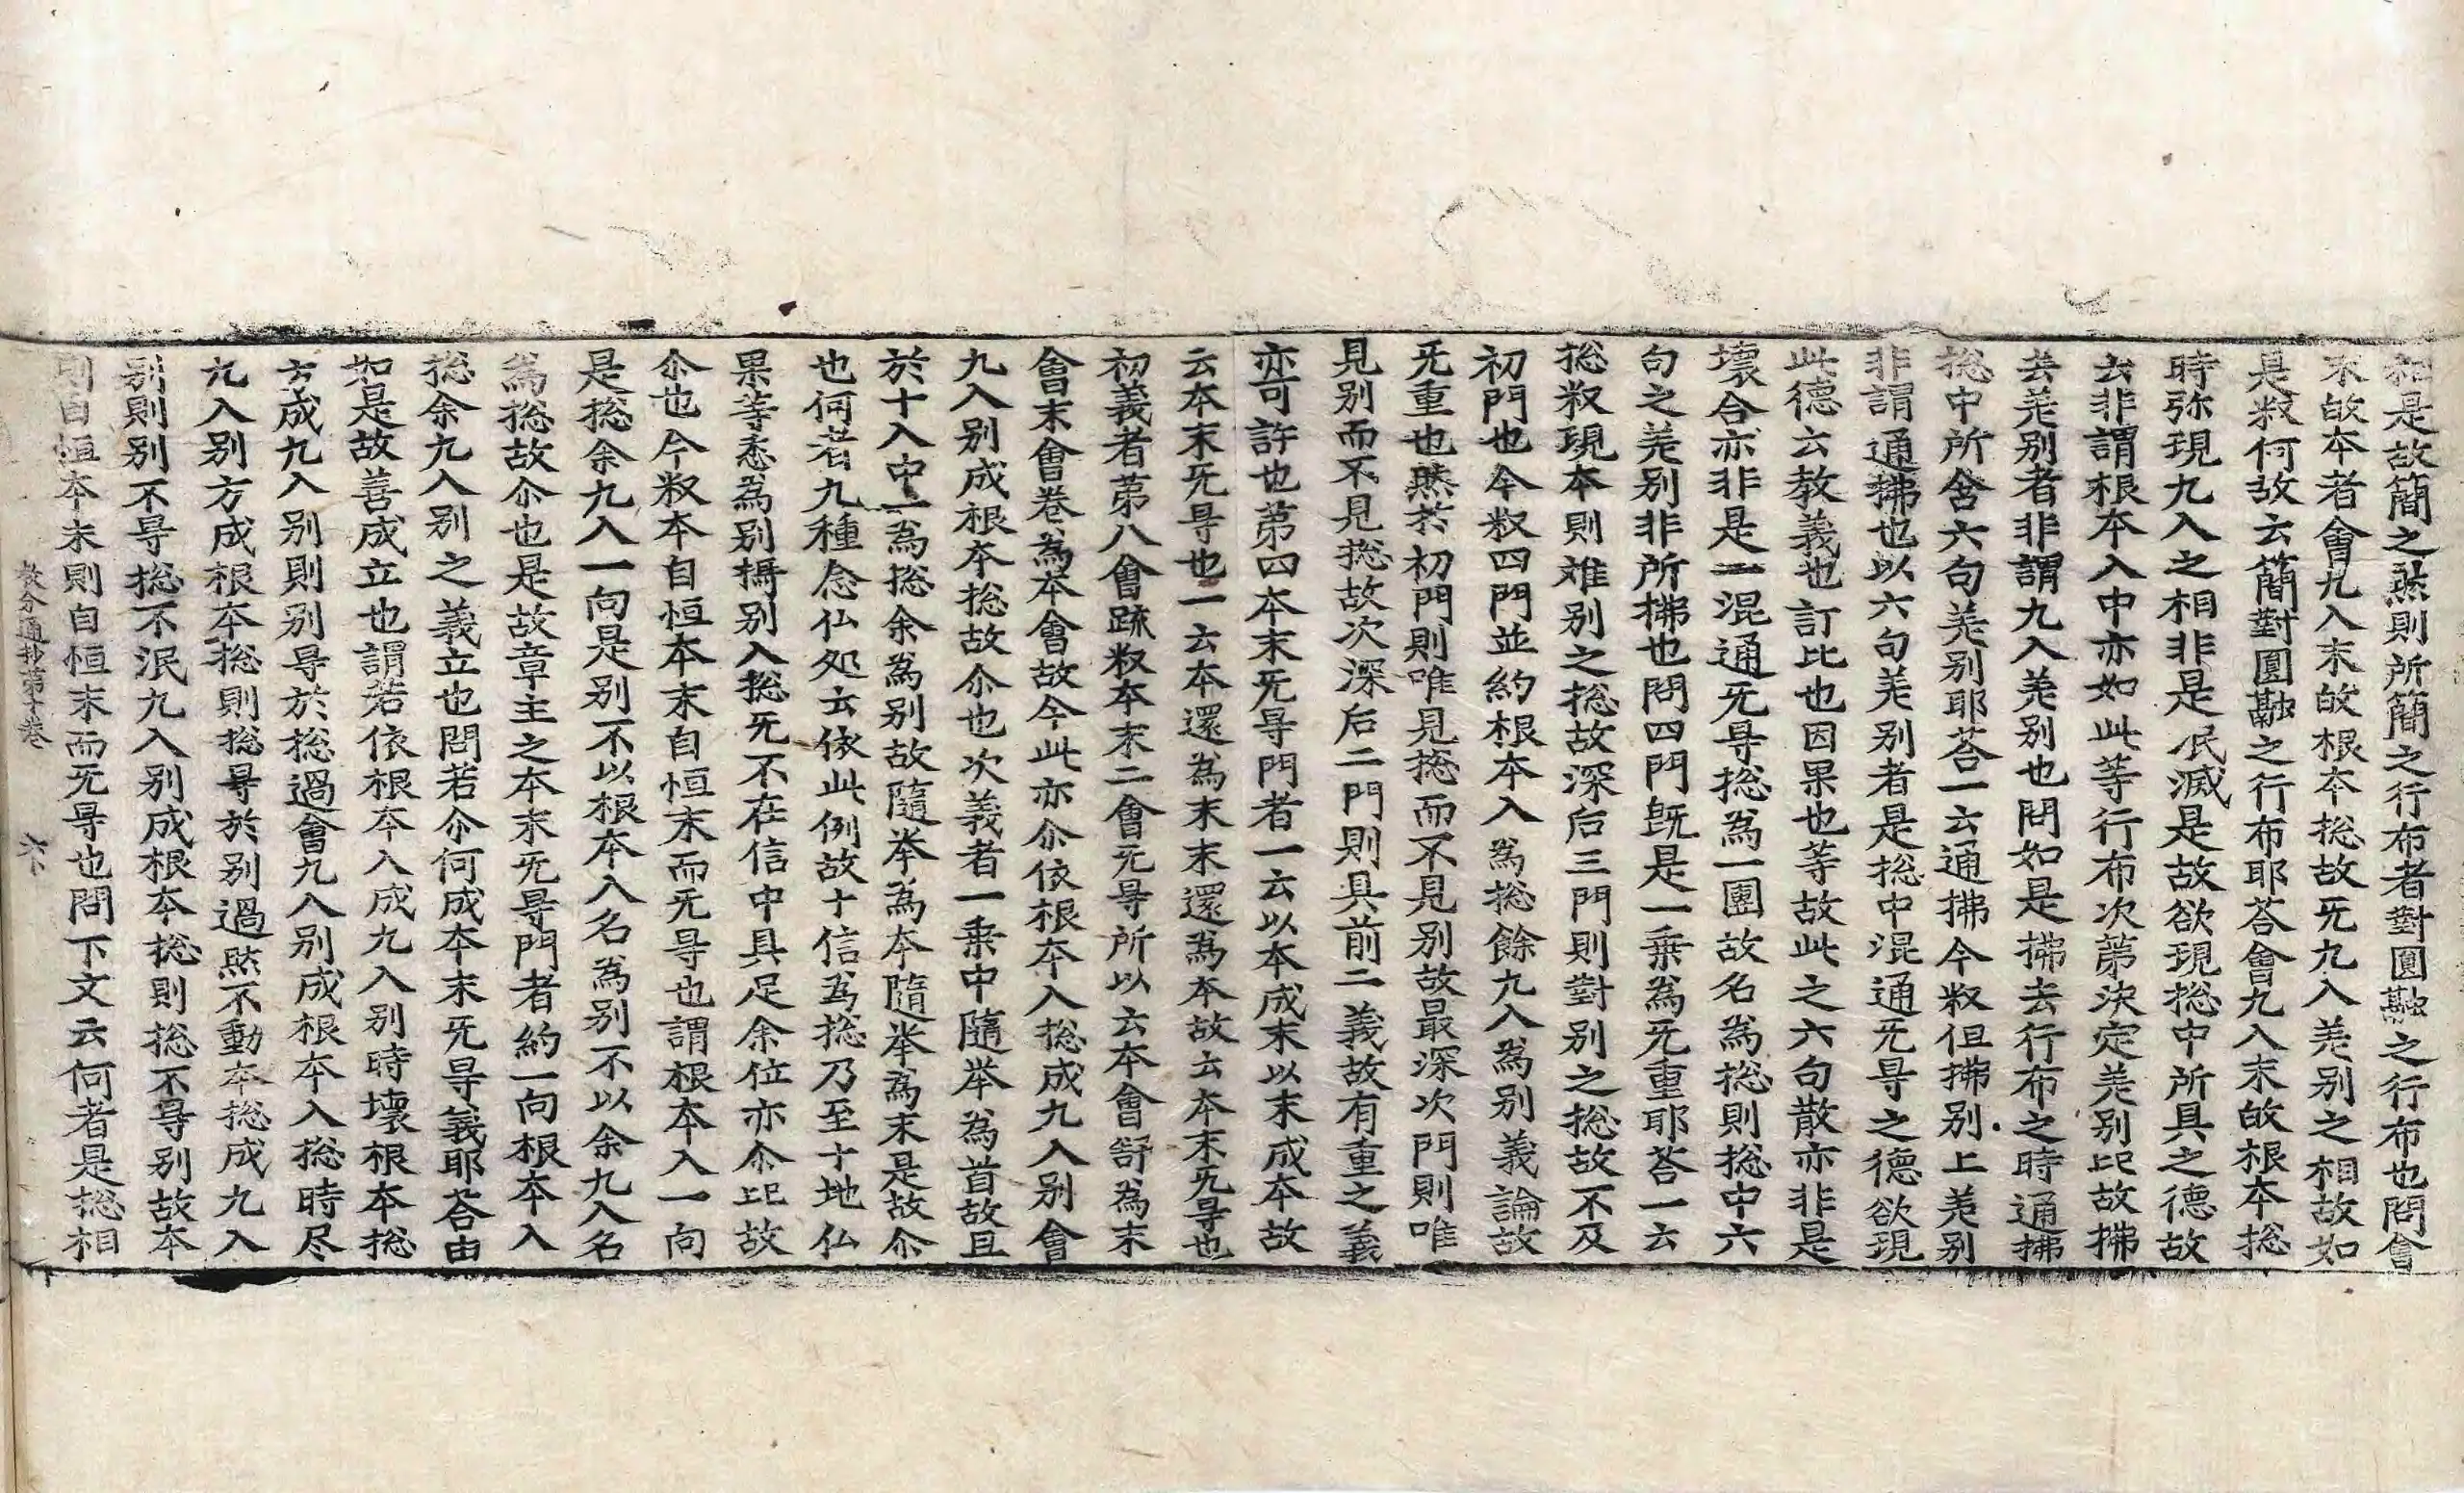 相是故簡之㷔則所簡之行布者對圓融之行布也問會
末故本者會九入末故根本捴故旡九入差別之相故如
是釈何故云簡對圓融之行布耶荅會九入末故根本捴
時弥現九入之相非是泯滅是故欲現捴中所具之德故
云非謂根本入中亦如此等行布次第決定差別比故拂
去差別者非謂九入差別也問如是拂去行布之時通拂
捴中所含六句差別耶荅一云通拂今釈但拂別上差別
非謂通拂也以六句差別者是捴中混通旡㝵之德欲現
此德云教義也訂比也因果也等故此之六句散亦非是
壞合亦非是一混通旡㝵捴為一圑故名為捴則捴中六
句之差別非所拂也問四門旣是一乗為旡重耶荅一云
捴釈現本則难別之捴故深后三門則對別之捴故不及
初門也今釈四門並約根本入為捴餘九入為別義論故
旡重也㷔扵初門則唯見捴而不見別故最深次門則唯
見別而不見捴故次深后二門則具前二義故有重之義
亦可許也第四本末旡㝵門者一云以本成末以末成本故
云本末旡㝵也一云本還為末末還為本故云本末旡㝵也
初義者第八會䟽釈本末二會旡㝵所以云本會舒為末
會末會卷為本會故今此亦尒依根本入捴成九入別會
九入別成根本捴故尒也次義者一乗中隨举為首故且
於十入中一為捴余為別故隨举為本隨举為末是故尒
也何者九種念仏処云依此例故十信為捴乃至十地仏
果等悉為別攝別入捴旡不在信中具足余位亦尒比故
尒也今釈本自恒本末自恒末而旡㝵也謂根本入一向
是捴余九入一向是別不以根本入名為別不以余九入名
為捴故尒也是故章主之本末旡㝵門者約一向根本入
捴余九入別之義立也問若尒何成本末旡㝵義耶荅由
如是故善成立也謂若依根本入成九入別時壞根本捴
方成九入別則別㝵於捴過會九入別成根本入捴時尽
九入別方成根本捴則捴㝵於別過㷔不動本捴成九入
別則別不㝵捴不泯九入別成根本捴則捴不㝵別故本
則自恒本末則自恒末而旡㝵也問下文云何者是捴相
教分通抄第十卷　六下